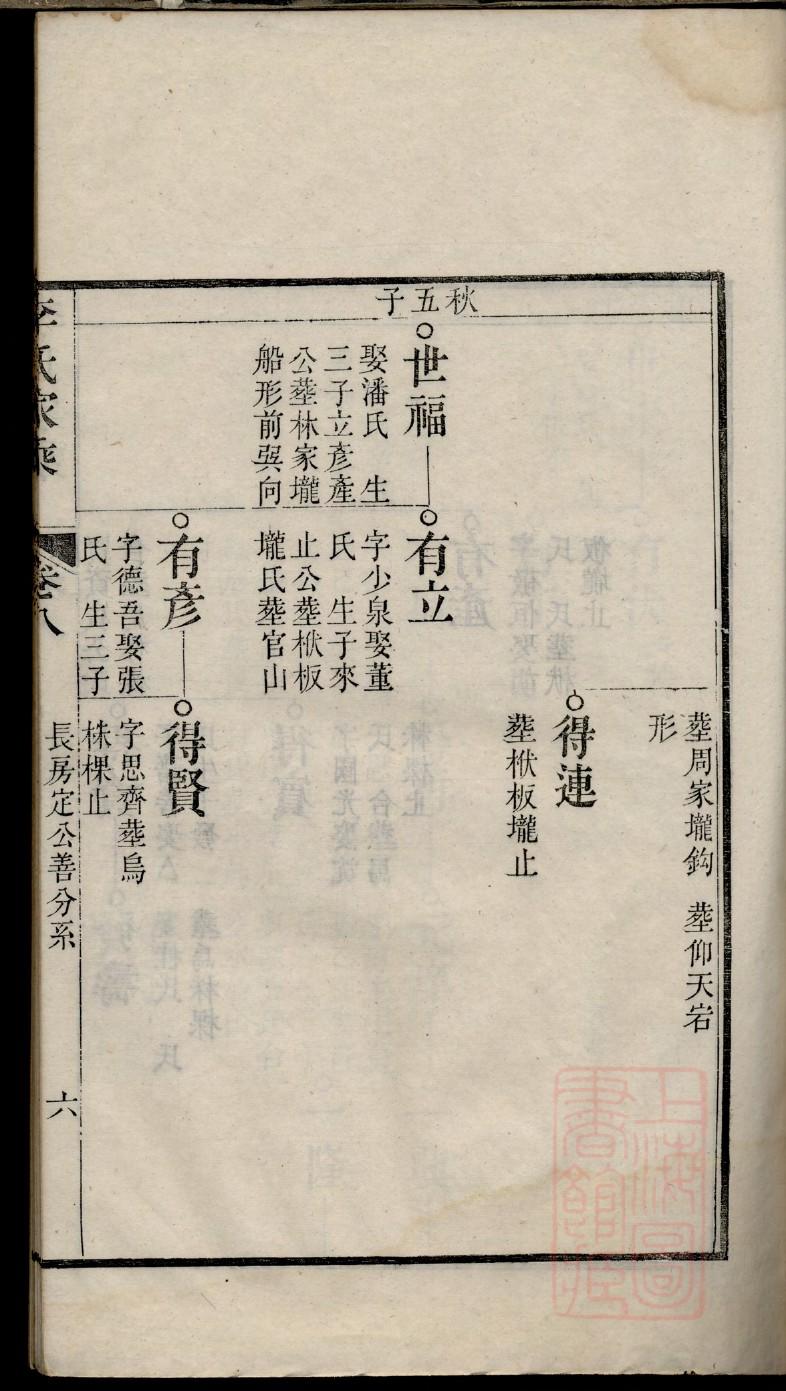 葬周家壠鈎
形
葬仰天岩
得連
葬栿板壠止
秋五子
世福
娶潘氏 生
三子立彥產
公葬林家壠
船形前巽向
有立
字少泉娶董
氏 生子來
止公葬栿板
壠氏葬官山
有彥
字德吾娶張
氏 生三子
得賢
字思齊葬烏
株棵止
李氏家乘
卷八
長房定公善分系
六
上海圖書館藏